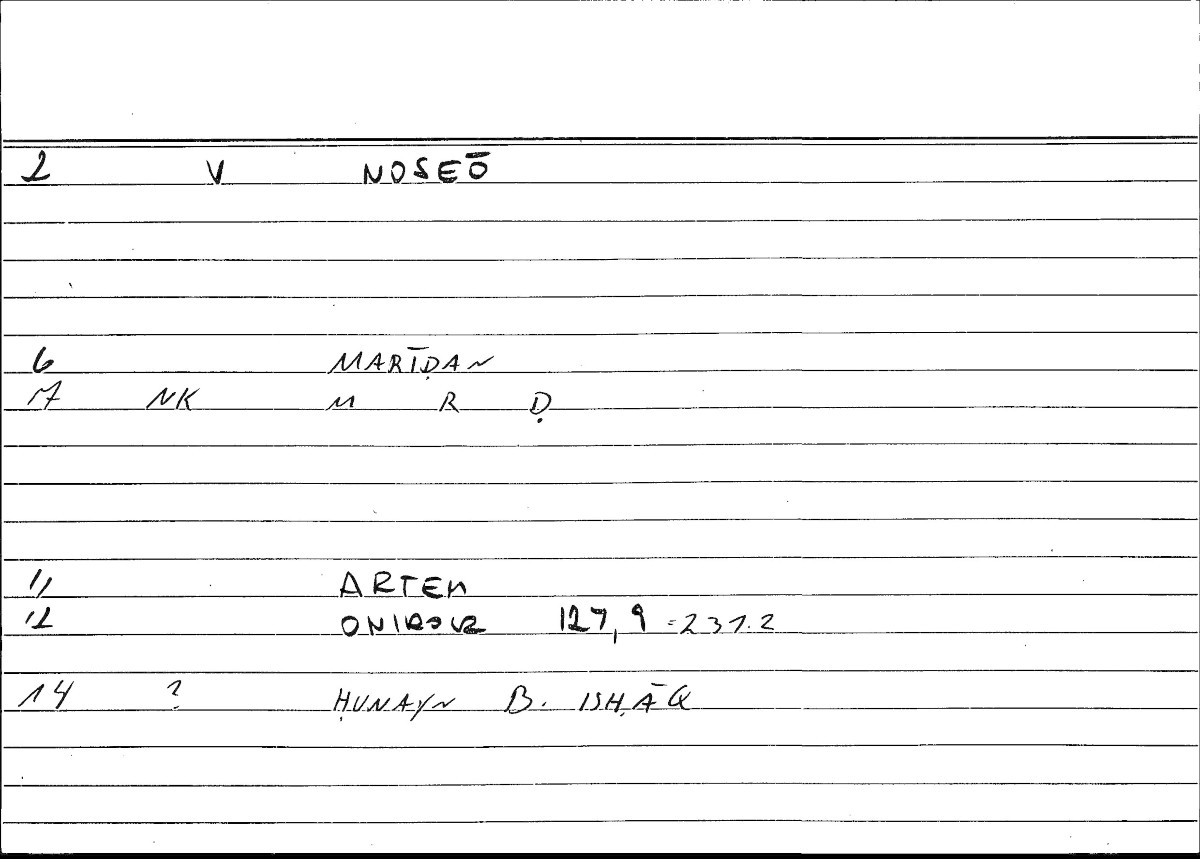 2 V NOSEŌ
6 MARĪḌAN
7 NK M R Ḍ
11 ARTEM
12 ONIROCR 127,9 =231.2
14 ? ḤUNAYN B. ISḤĀQ